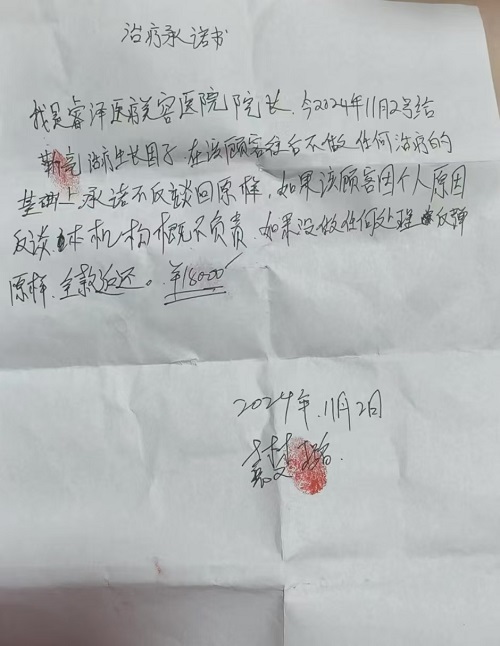 治疗承诺书
我是睿泽医疗美容医院院长.今2024年11月2号给
靳亮治疗生长因子在该顾客往后不做任何治疗的
基础上承诺不反谈回原样,如果该顾客因个人原因
反谈本机构概不负责.如果没做任何处理反弹
原样.全款返还。¥18000
2024年.11月2日